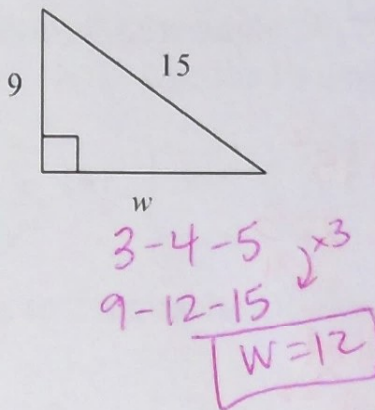 15
9
w
3-4-5 ×3
9-12-15
W=12